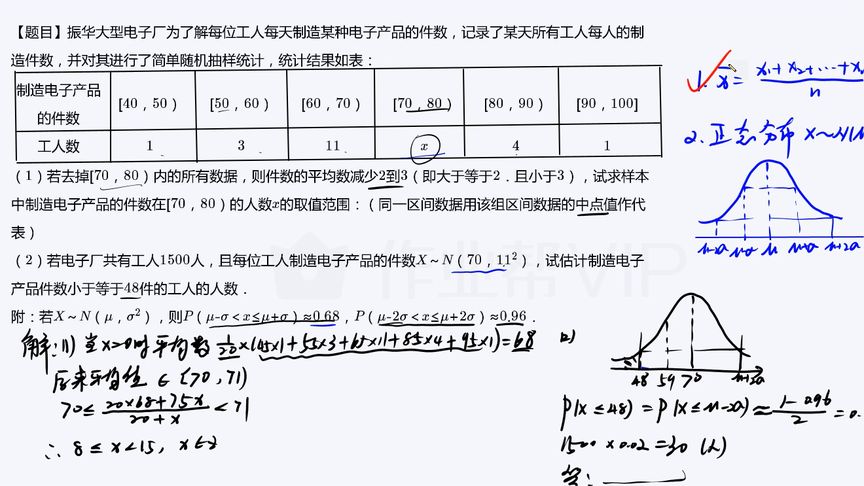 【题目】振华大型电子厂为了解每位工人每天制造某种电子产品的件数，记录了某天所有工人每人的制
造件数，并对其进行了简单随机抽样统计，统计结果如表：
制造电子产品的件数 [40，50） [50，60） [60，70） [70，80） [80，90） [90，100]
工人数 1 3 11 x 4 1
（1）若去掉[70，80）内的所有数据，则件数的平均数减少2到3（即大于等于2．且小于3），试求样本
中制造电子产品的件数在[70，80）的人数x的取值范围：（同一区间数据用该组区间数据的中点值作代
表）
（2）若电子厂共有工人1500人，且每位工人制造电子产品的件数X~N（70，11²），试估计制造电子
产品件数小于等于48件的工人的人数．
附：若X~N（μ，σ²），则P（μ-σ<x≤μ+σ）≈0.68，P（μ-2σ<x≤μ+2σ）≈0.96．
作业帮VIP
解：(1) 当x=0时 平均数 1/20×(45×1+55×3+65×11+85×4+95×1)=68
原来平均值 ∈ [70,71)
70≤ (20×68+75x)/(20+x) <71
∴ 8≤x<15, x∈Z
1. x̄= (x₁+x₂+…+x
n
2. 正态分布 X~N(μ
μ-2σ μ-σ μ μ+σ μ+2σ
2)
48 59 70 μ+2σ
P(X≤48)=P(X≤μ-2σ)≈ (1-0.96)/2 =0.
1500×0.02=30 (人)
答：